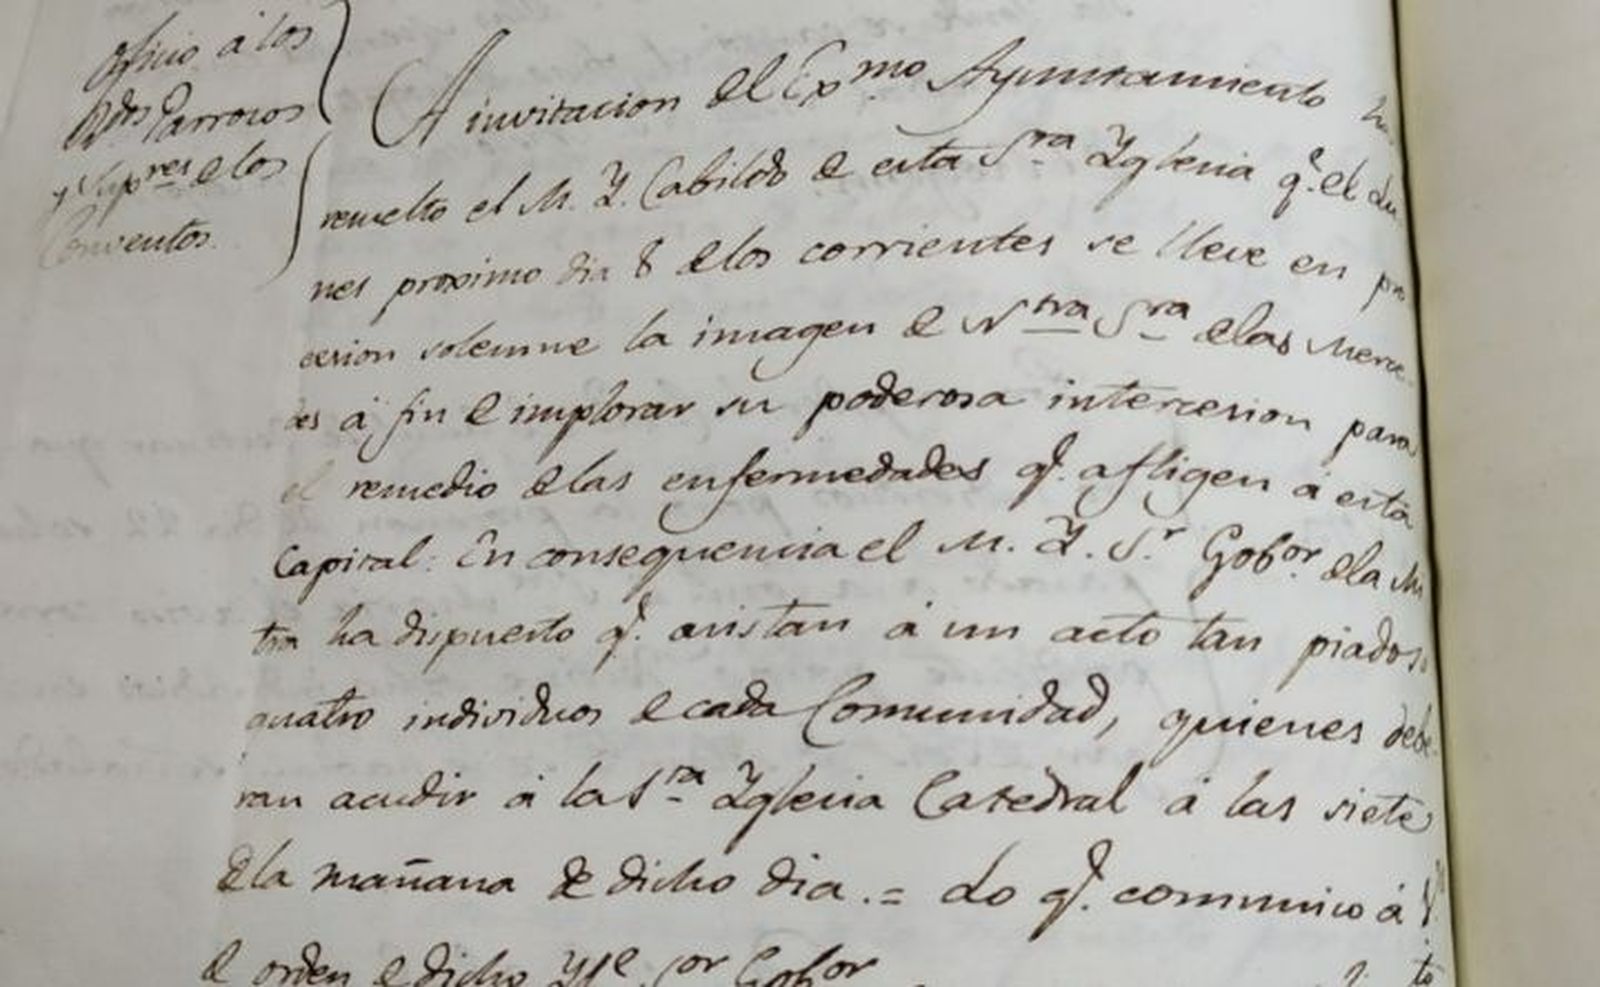 oficio á los
Rdos Parrocos
y Supres de los
Conventos.
A invitacion del Exmo Ayuntamiento ha
resuelto el M. Y. Cabildo de esta Sta Yglesia q.e el Lu
nes proximo dia 8 de los corrientes se lleve en pro
cesion solemne la imagen de Ntra Sra de las Merce-
des á fin de implorar su poderosa intercesion para
el remedio de las enfermedades q.e afligen á esta
Capital: En consequencia el M. Y. S.r Gob.or de la Mi
tra ha dispuesto q.e asistan á un acto tan piadoso
quatro individuos de cada Comunidad, quienes debe-
ran acudir á la Sta Yglesia Catedral á las siete
de la mañana de dicho dia. = Lo q.e comunico á V.
de orden de dicho Yle Sor Gobor